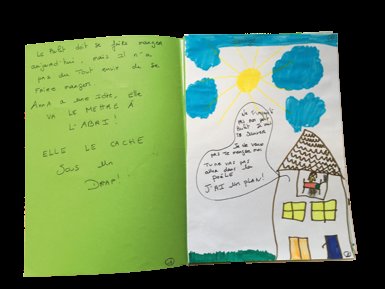 Le Poti doit se faire manger
aujourd'hui, mais il n'a
pas du tout envie de se
faire manger.
Anna a une idée, elle
VA LE METTRE À
L'ABRI!
ELLE LE CACHE
SOUS UN
DRAP!
Ne t'inquiète
pas mon petit
je vais
te sauver
Je ne veux
pas te manger moi
Tu ne vas pas
aller dans la
poêle
J'AI UN PLAN!